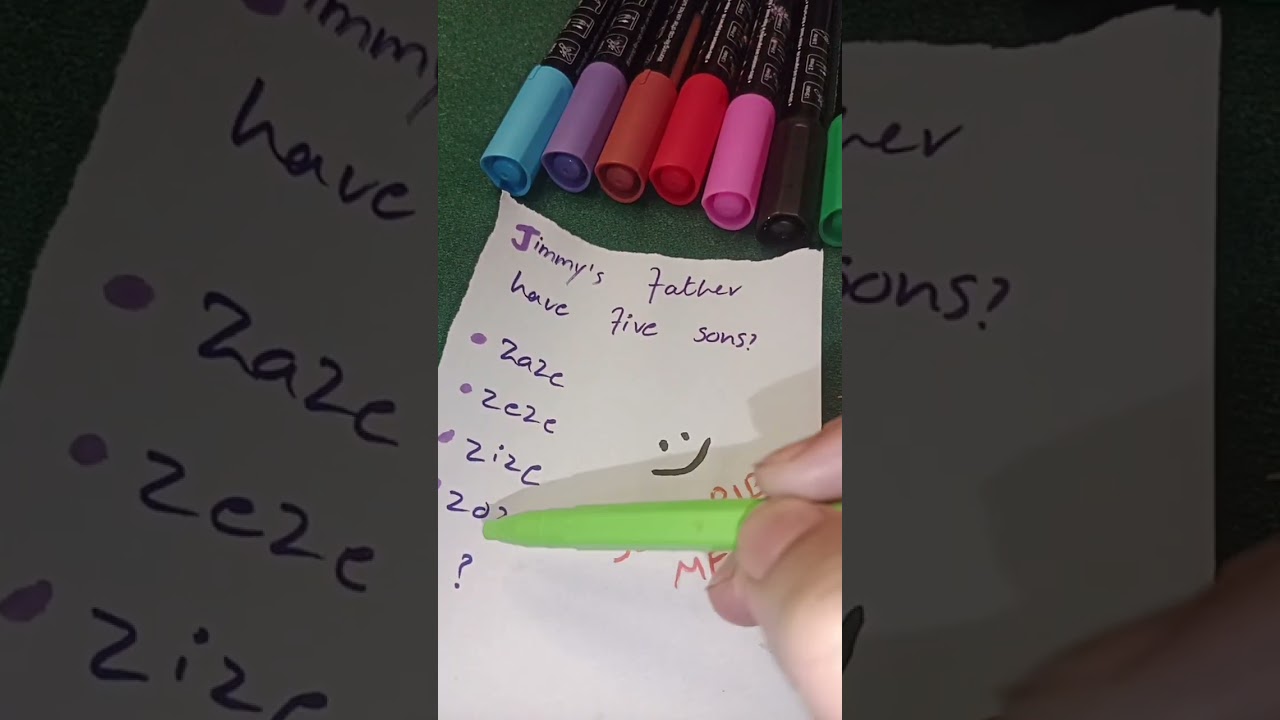 Jimmy's Father
have Five sons?
Zaze
Zeze
Zize
?